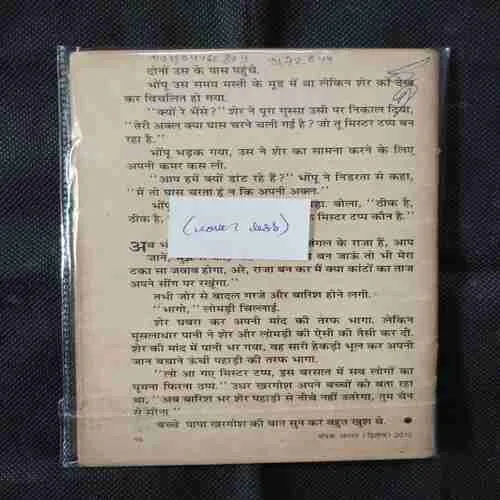 दोनों उस के पास पहुंचे.
भोंपू उस समय मस्ती के मूड में था लेकिन शेर को देख
कर विचलित हो गया.
"क्यों रे भैंसे?" शेर ने पूरा गुस्सा उसी पर निकाल दिया,
"तेरी अक्ल क्या घास चरने चली गई है? जो तू मिस्टर टप्प बन
रहा है."
भोंपू भड़क गया, उस ने शेर का सामना करने के लिए
अपनी कमर कस ली.
"आप हमें क्यों डांट रहे हैं?" भोंपू ने निडरता से कहा,
"मैं तो घास चरता हूं न कि अपनी अक्ल."
बोला, "ठीक है,
ठीक है, मिस्टर टप्प कौन है."
(cover less)
जंगल के राजा हैं, आप
जानें, बन जाऊं तो भी मेरा
टका सा जवाब होगा, अरे, राजा बन कर मैं क्या कांटों का ताज
अपने सींग पर रखूंगा."
तभी जोर से बादल गरजे और बारिश होने लगी.
"भागो," लोमड़ी चिल्लाई.
शेर घबरा कर अपनी मांद की तरफ भागा. लेकिन
मूसलाधार पानी ने शेर और लोमड़ी की ऐसी की तैसी कर दी.
शेर की मांद में पानी भर गया, वह सारी हेकड़ी भूल कर अपनी
जान बचाने ऊंची पहाड़ी की तरफ भागा.
"लो आ गए मिस्टर टप्प, इस बरसात में सब लोगों का
घूमना फिरना ठप्प." उधर खरगोश अपने बच्चों को बता रहा
था, "अब बारिश भर शेर पहाड़ी से नीचे नहीं उतरेगा, तुम चैन
से सोना."
बच्चे पापा खरगोश की बात सुन कर बहुत खुश थे.